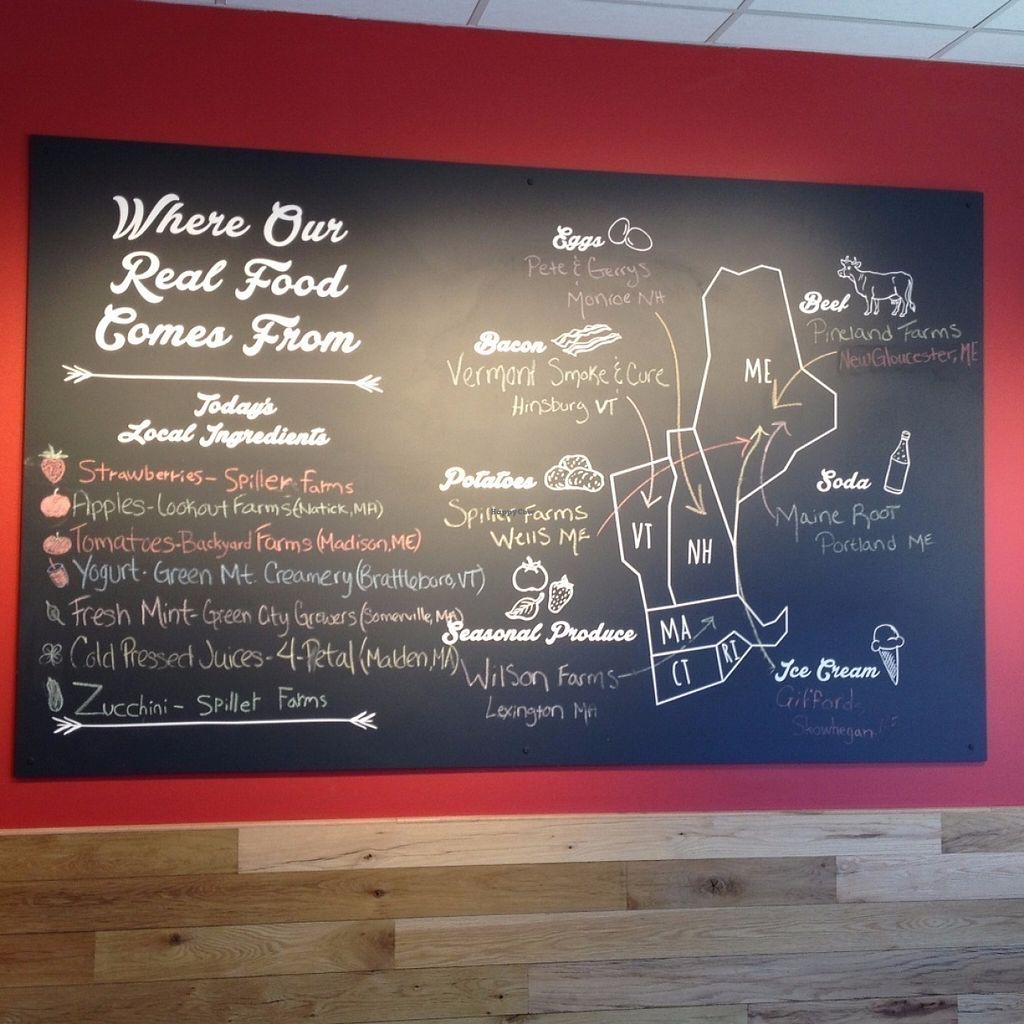 Where Our
Real Food
Comes From
Today's
Local Ingredients
Strawberries- Spiller Farms
Apples-Lookout Farms(Natick,MA)
Tomatoes-Backyard Farms (Madison,ME)
Yogurt- Green Mt. Creamery(Brattleboro,VT)
Fresh Mint-Green City Growers(Somerville, MA)
Cold Pressed Juices-4-Petal(Malden,MA)
Zucchini- Spiller Farms
Eggs
Pete & Gerrys
Monroe NH
Bacon
Vermont Smoke & Cure
Hinsburg VT
Potatoes
Spiller Farms
Wells ME
Seasonal Produce
Wilson Farms
Lexington MA
Beef
Pineland Farms
New Gloucester, ME
Soda
Maine Root
Portland ME
Ice Cream
Giffords
Skowhegan
ME
VT
NH
MA
CT
RI
HappyCow